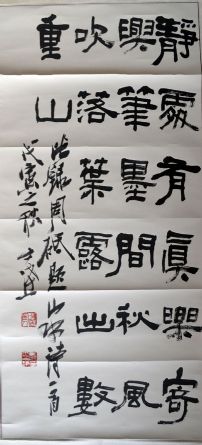 靜處有眞樂寄
興筆墨間秋風
吹落葉露出數
重山
錄周砥題山水詩一首
戊寅之秋